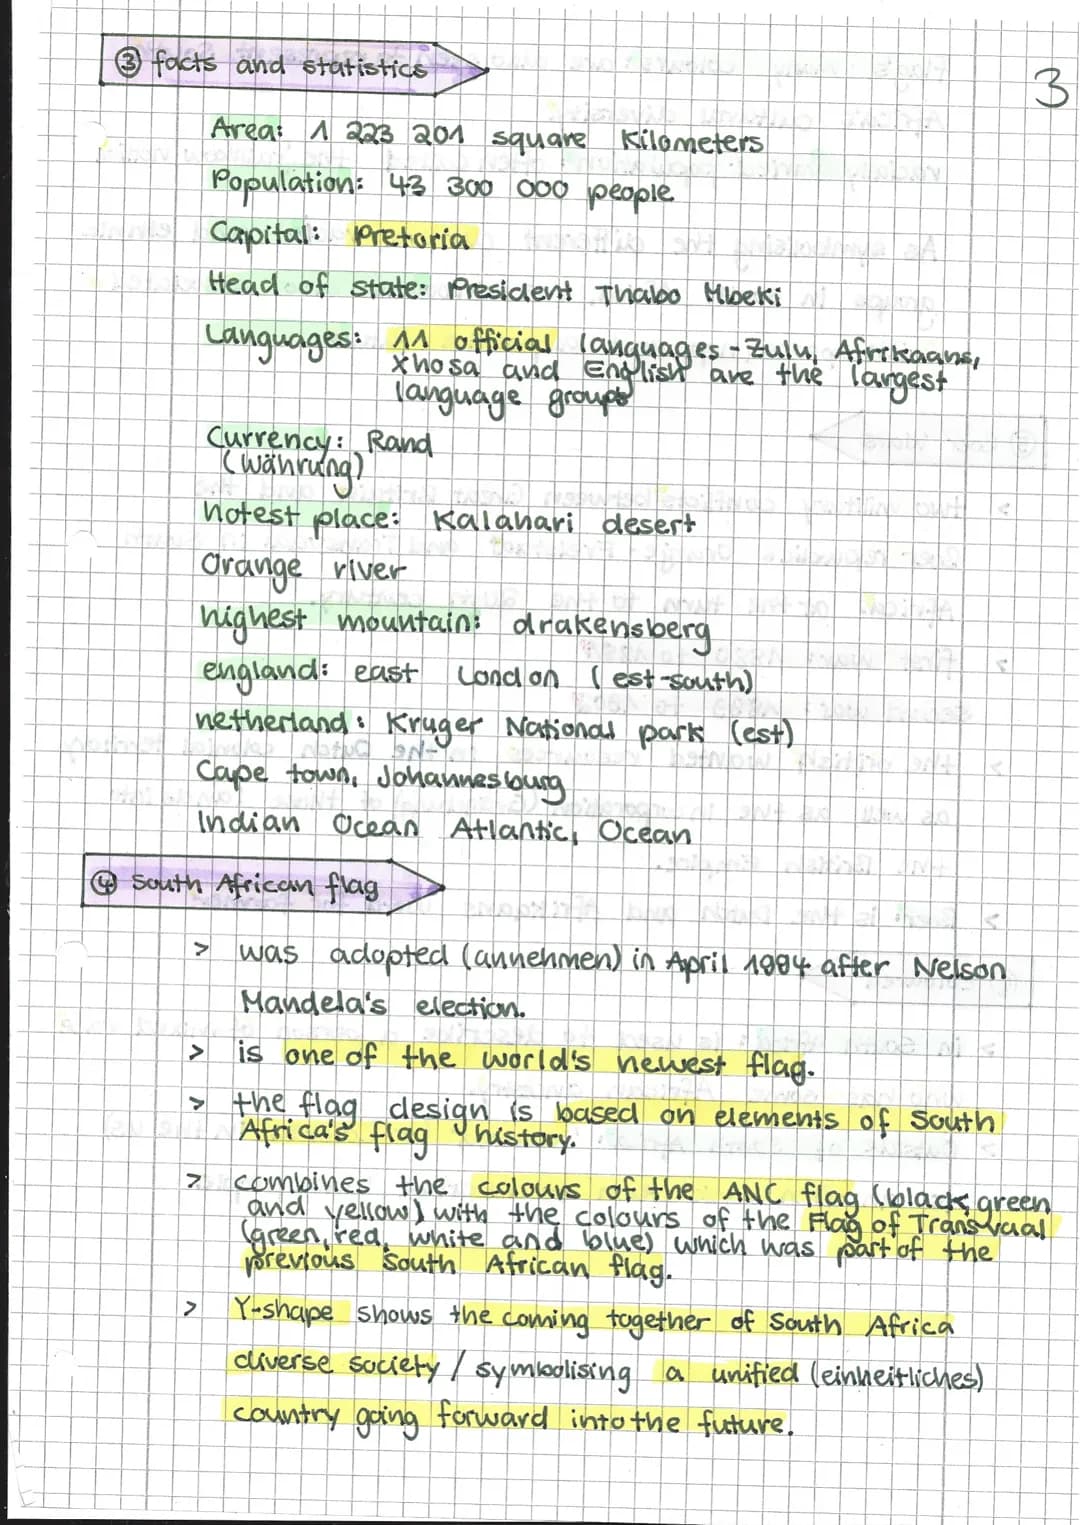 ③ facts and statistics
3
Area: 1 223 201 square Kilometers
Population: 43 300 000 people
Capital: Pretoria
Head of state: President Thabo Mbeki
Languages: 11 official languages - Zulu, Afrikaans,
Xhosa and English are the largest
language groups
Currency: Rand
(Währung)
hotest place: Kalahari desert
Orange river
highest mountain: drakensberg
england: east London (est-south)
netherland: Kruger National park (est)
Cape town, Johannesburg
Indian Ocean Atlantic, Ocean
④ South African flag
> was adopted (annehmen) in April 1994 after Nelson
Mandela's election.
> is one of the world's newest flag.
> the flag design is based on elements of South
Africa's flag history.
> combines the colours of the ANC flag (black, green
and yellow) with the colours of the Flag of Transvaal
(green, red, white and blue) which was part of the
previous South African flag.
> Y-shape shows the coming together of South Africa
diverse society / symbolising a unified (einheitliches)
country going forward into the future.